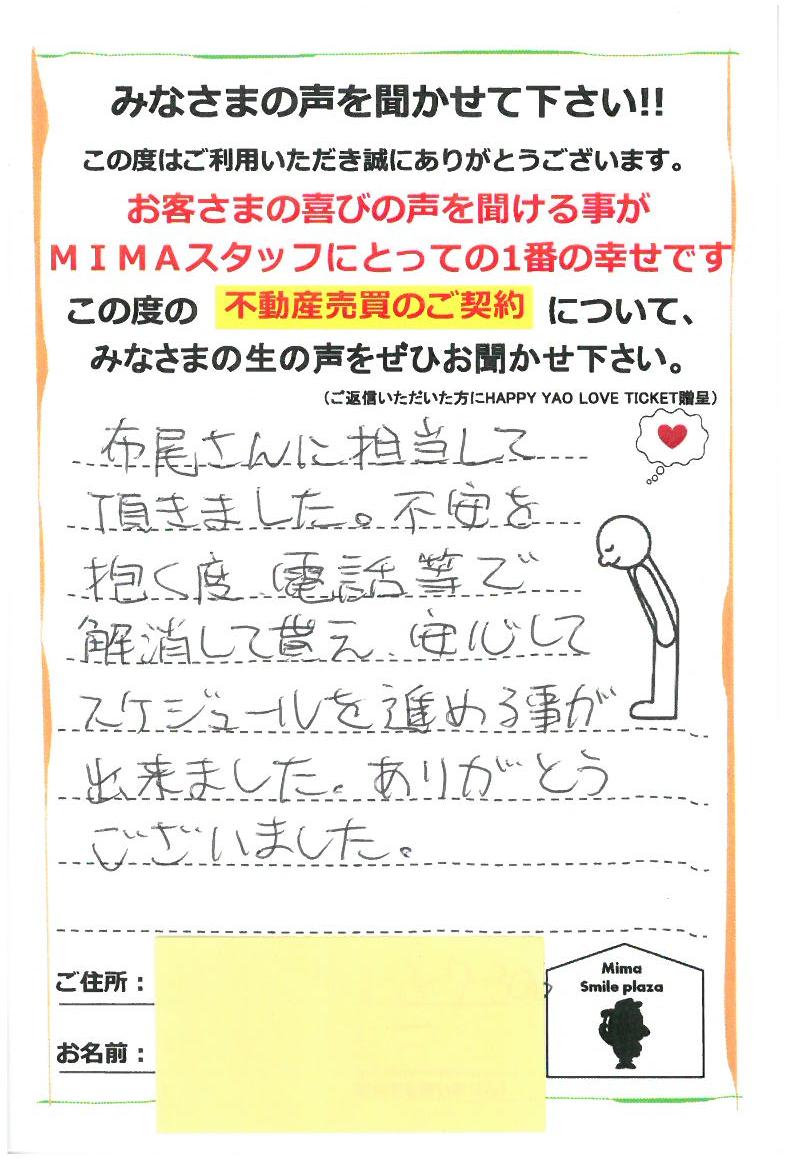 みなさまの声を聞かせて下さい!!
この度はご利用いただき誠にありがとうございます。
お客さまの喜びの声を聞ける事が
ＭＩＭＡスタッフにとっての1番の幸せです
この度の 不動産売買のご契約 について、
みなさまの生の声をぜひお聞かせ下さい。
（ご返信いただいた方にHAPPY YAO LOVE TICKET贈呈）
布尾さんに担当して
頂きました。不安を
抱く度、電話等で
解消して貰え、安心して
スケジュールを進める事が
出来ました。ありがとう
ございました。
ご住所：
お名前：
Mima
Smile plaza